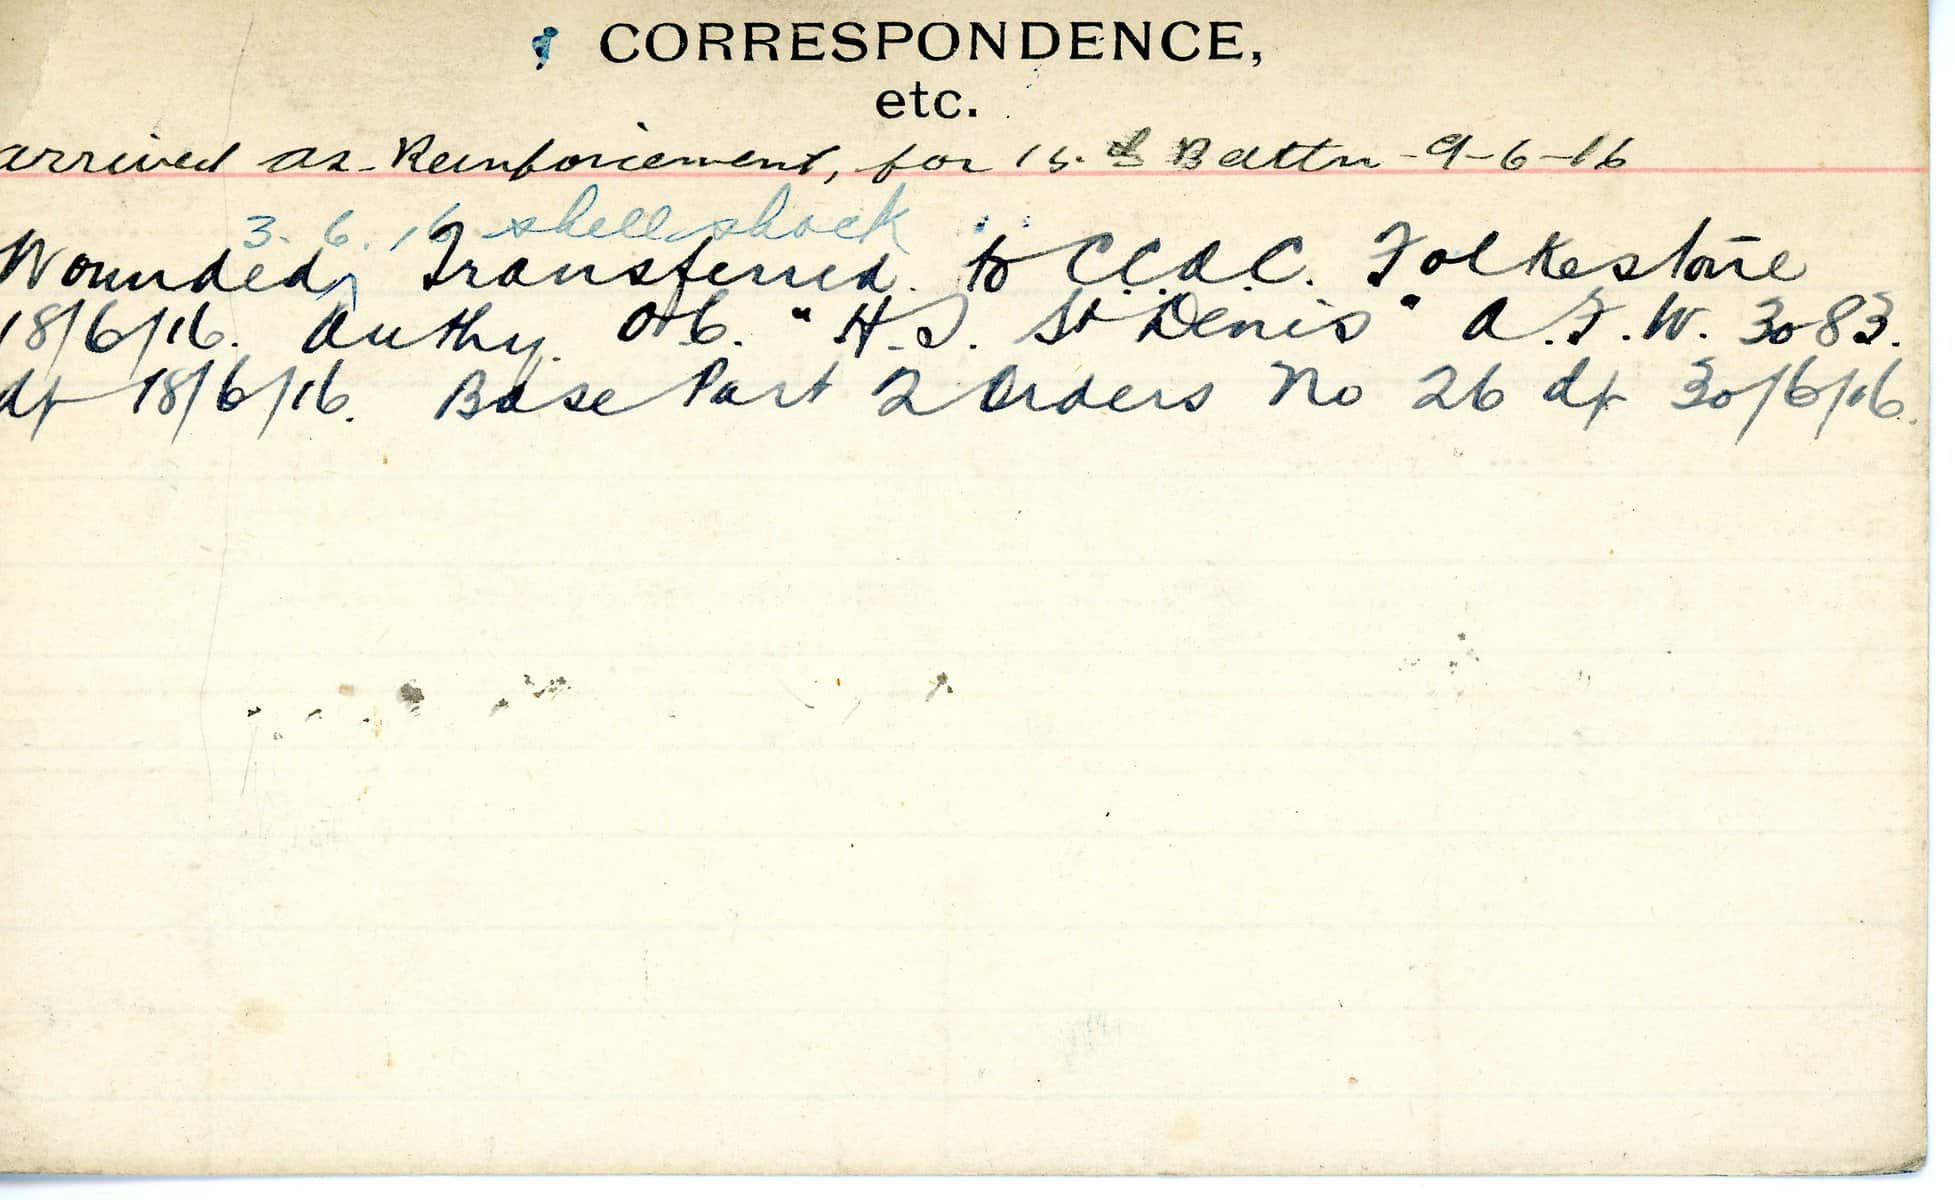 CORRESPONDENCE,
etc.
arrived as Reinforcement, for 15. Battn - 9-6-16
3. 6. 16 shell shock
Wounded, Transferred to C.C.A.C. Folkestone
18/6/16. Authy. O/C. "H.S. St Denis" A.F.W. 3083.
dt 18/6/16. Base Part 2 Orders No 26 dt 30/6/16.